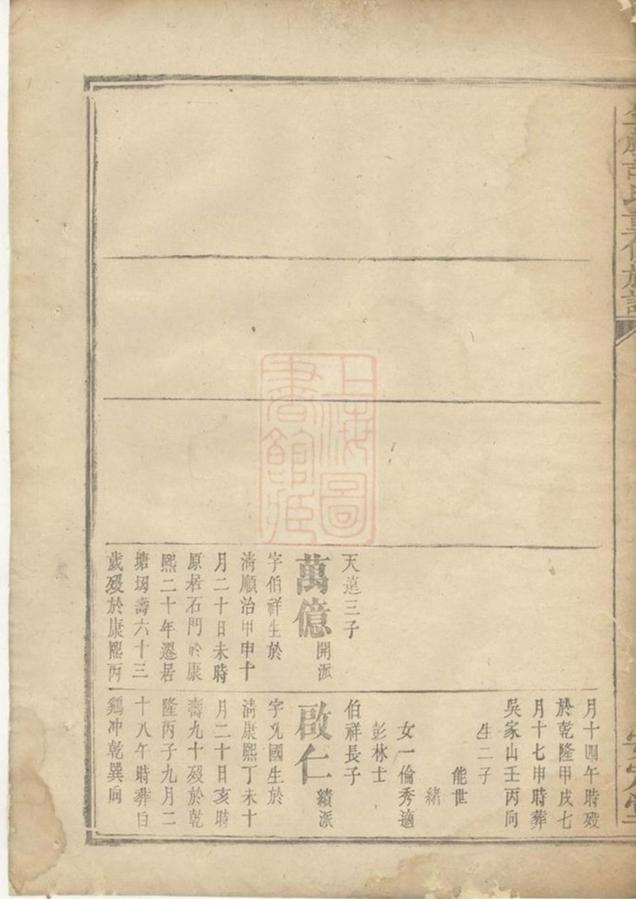 天遠三子
萬億
開派
字伯祥生於
清順治甲申十
月二十日未時
原居石門於康
熙二十年遷居
塘坳壽六十三
歲歿於康熙丙
月十四午時歿
於乾隆甲戌七
月十七申時葬
吳家山壬丙向
生二子
能世
緒
女一倫秀適
彭林士
伯祥長子
啟仁
續派
字允國生於
清康熙丁未十
月二十日亥時
壽九十歿於乾
隆丙子九月二
十八午時葬白
鷄冲乾巽向
上海圖
書館